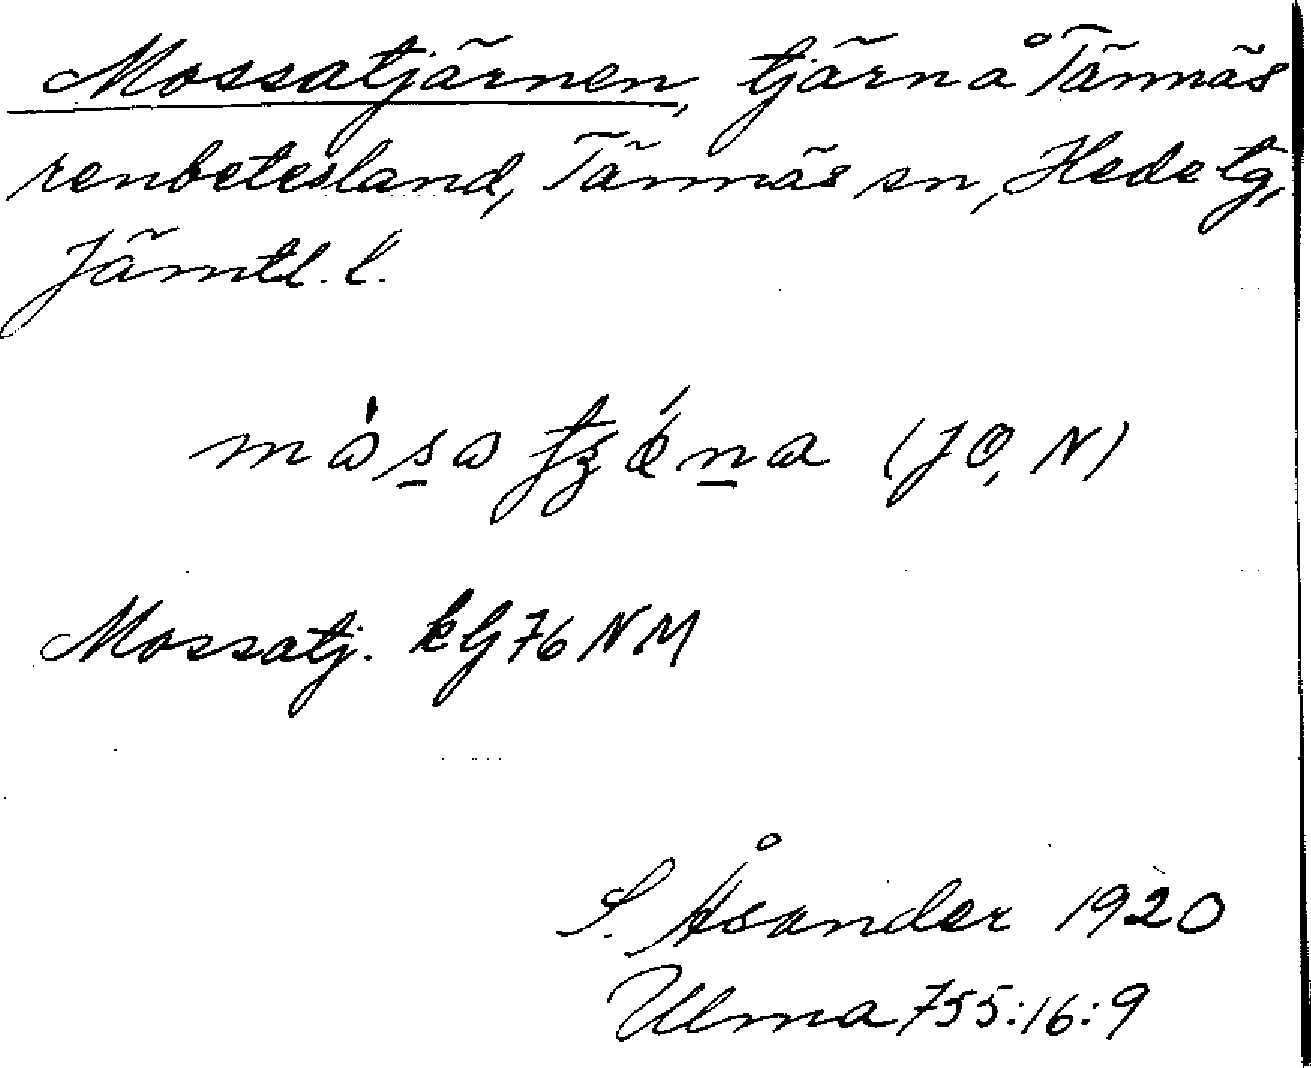 Mossatjärnen, tjärn å Tännäs
renbetesland, Tännäs sn, Hede tg,
Jämtl. l.
(JO, N)
Mossatj. kG 76 NM
S. Åsander 1920
Ulma 755:16:9